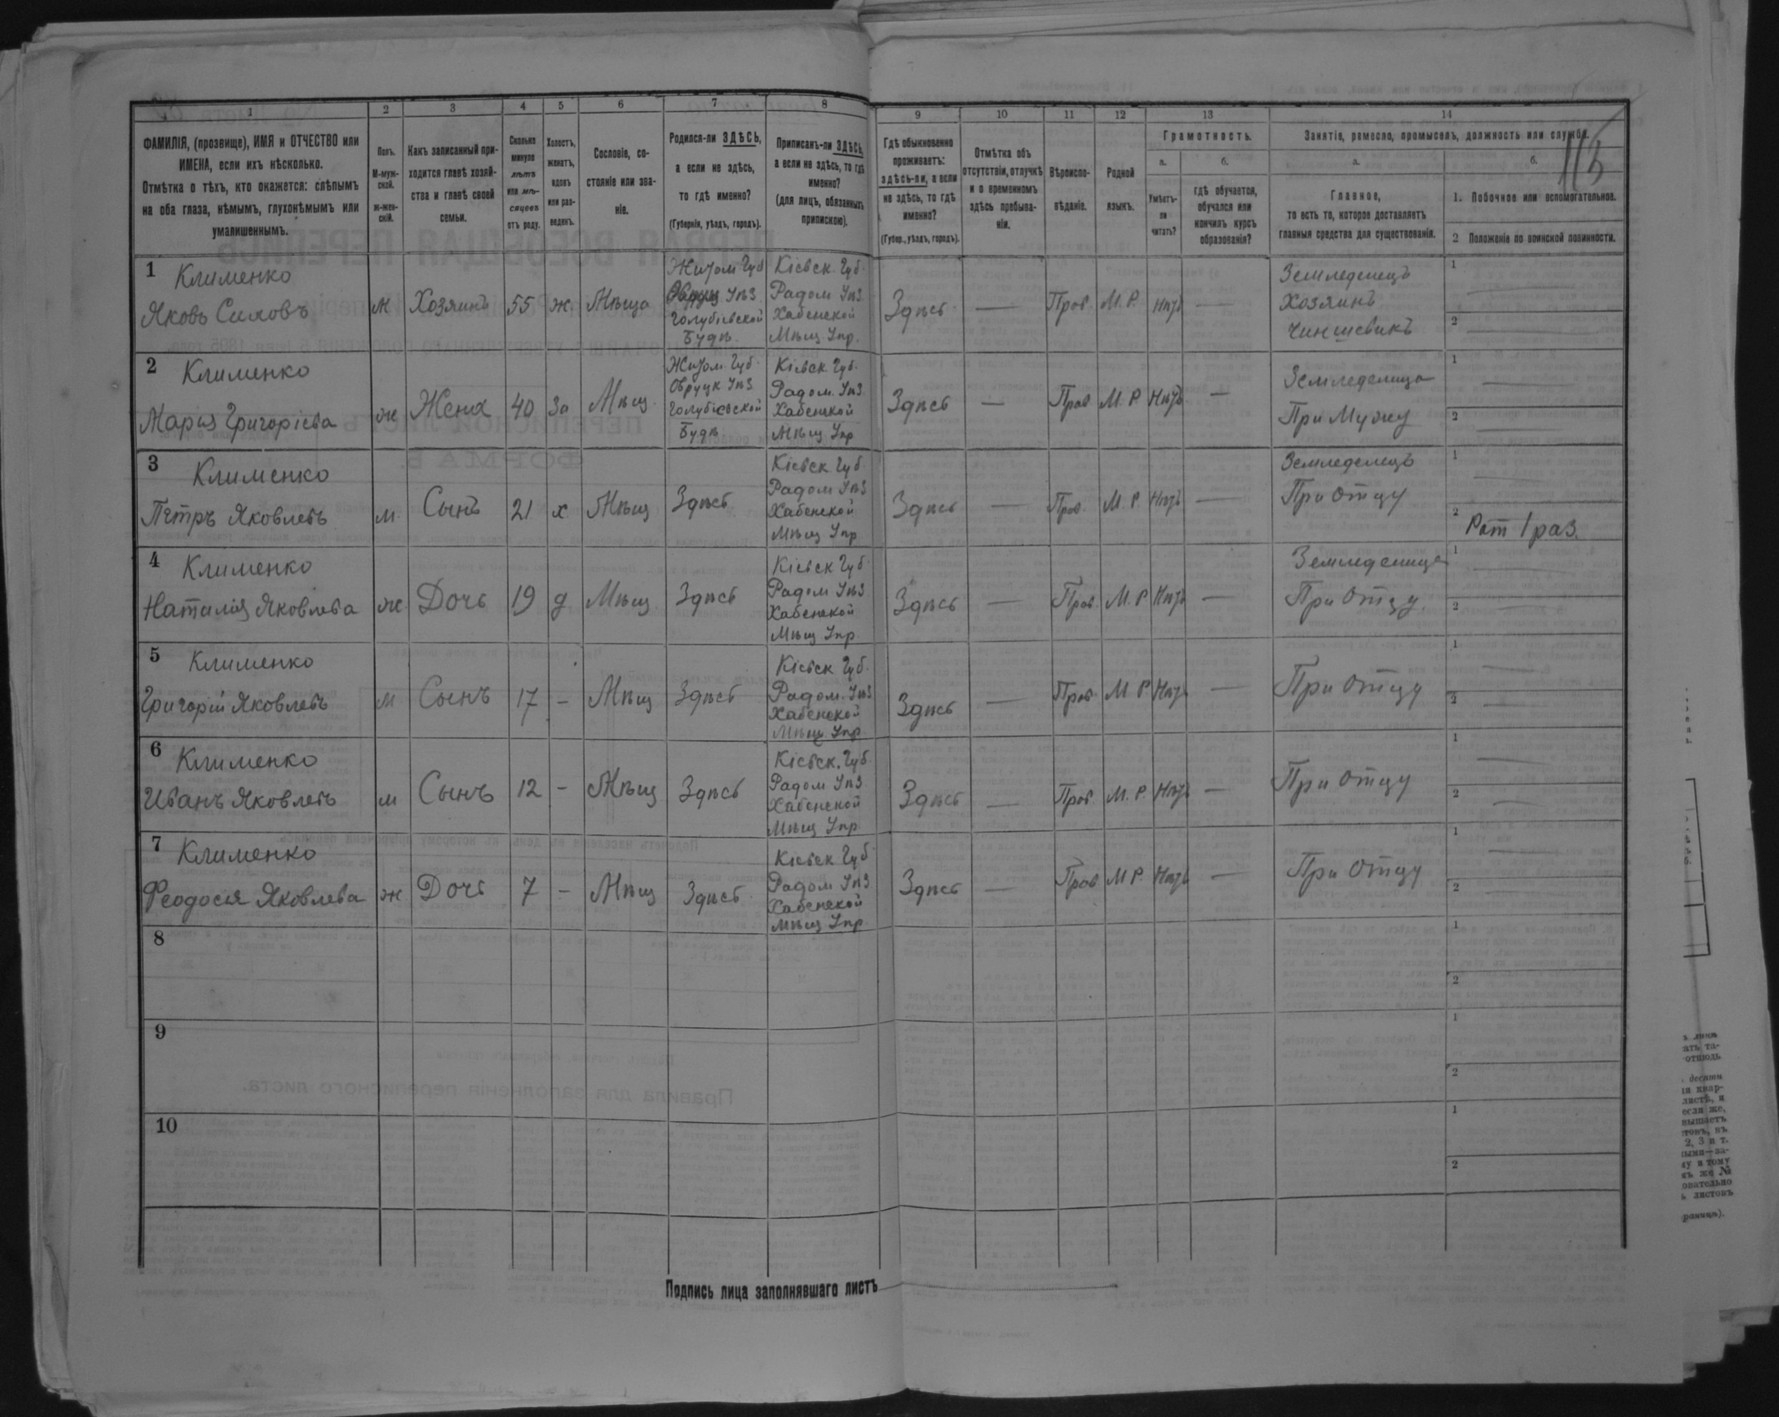 1
2
3
4
5
6
7
8
9
10
11
12
13
14
ФАМИЛІЯ, (прозвище), ИМЯ и ОТЧЕСТВО или
ИМЕНА, если ихъ нѣсколько.
Отмѣтка о тѣхъ, кто окажется: слѣпымъ
на оба глаза, нѣмымъ, глухонѣмымъ или
умалишеннымъ.
Полъ.
М-муж-
ской.
ж-жен-
скій.
Какъ записанный при-
ходится главѣ хозяй-
ства и главѣ своей
семьи.
Сколько
минуло
лѣтъ
или мѣ-
сяцевъ
отъ роду.
Холостъ,
женатъ,
вдовъ
или раз-
веденъ.
Сословіе, со-
стояніе или зва-
ніе.
Родился-ли ЗДѢСЬ,
а если не здѣсь,
то гдѣ именно?
(Губернія, уѣздъ, городъ).
Приписанъ-ли ЗДѢСЬ,
а если не здѣсь, то гдѣ
именно?
(для лицъ, обязанныхъ
припискою).
Гдѣ обыкновенно
проживаетъ:
здѣсь-ли, а если
не здѣсь, то гдѣ
именно?
(Губер., уѣздъ, городъ).
Отмѣтка объ
отсутствіи, отлучкѣ
и о временномъ
здѣсь пребыва-
ніи.
Вѣроиспо-
вѣданіе.
Родной
языкъ.
Грамотность.
а.
б.
Умѣетъ-
ли
читать?
гдѣ обучается,
обучался или
кончилъ курсъ
образованія?
Занятія, ремесло, промыселъ, должность или служба.
а.
б.
Главное,
то есть то, которое доставляетъ
главныя средства для существованія.
1. Побочное или вспомогательное.
2 Положеніе по воинской повинности.
1 Клименко
Яковъ Силовъ
м
Хозяинъ
55
ж
Мѣща
Житом Губ
Уѣз
Голубіевской
Будѣ
Кіевск. Губ.
Радом Уѣз
Хабенской
Мѣщ Упр.
Здѣсь
—
Прав.
М. Р.
Нѣтъ
—
Земледелецъ
Хозяинъ
Чиншевикъ
1
2
2 Клименко
Марья Григорієва
ж
Жена
40
За
Мѣщ
Житом. Губ.
Овруцк Уѣз
Голубіевской
Будѣ
Кіевск Губ.
Радом. Уѣз
Хабенской
Мѣщ Упр
Здѣсь
—
Прав
М. Р.
Нѣтъ
—
Земледелица
При Мужу
1
2
3 Клименко
Пётръ Яковлевъ
м.
Сынъ
21
х
Мѣщ
Здѣсь
Кіевск Губ
Радом Уѣз
Хабенской
Мѣщ Упр
Здѣсь
—
Прав.
М. Р.
Нѣтъ
—
Земледелецъ
При Отцу
1
2
Рат 1 раз.
4 Клименко
Наталія Яковлева
ж
Дочь
19
д
Мѣщ
Здѣсь
Кіевск Губ
Радом Уѣз
Хабенской
Мѣщ Упр
Здѣсь
—
Прав.
М. Р
Нѣтъ
—
Земледелица
При Отцу
1
2
5 Клименко
Григорій Яковлевъ
м
Сынъ
17
-
Мѣщ
Здѣсь
Кіевск Губ.
Радом. Уѣз
Хабенской
Мѣщ Упр
Здѣсь
—
Прав.
М Р
Нѣтъ
—
При Отцу
1
2
6 Клименко
Иванъ Яковлевъ
м
Сынъ
12
-
Мѣщ
Здѣсь
Кіевск. Губ.
Радом Уѣз
Хабенской
Мѣщ Упр
Здѣсь
—
Прав.
М. Р.
Нѣтъ
—
При Отцу
1
2
7 Клименко
Феодосія Яковлева
ж
Дочь
7
-
Мѣщ
Здѣсь
Кіевск Губ
Радом Уѣз
Хабенской
Мѣщ Упр
Здѣсь
—
Прав
М Р.
Нѣтъ
—
При Отцу
1
2
8
1
2
9
1
2
10
1
2
Подпись лица заполнявшаго листъ